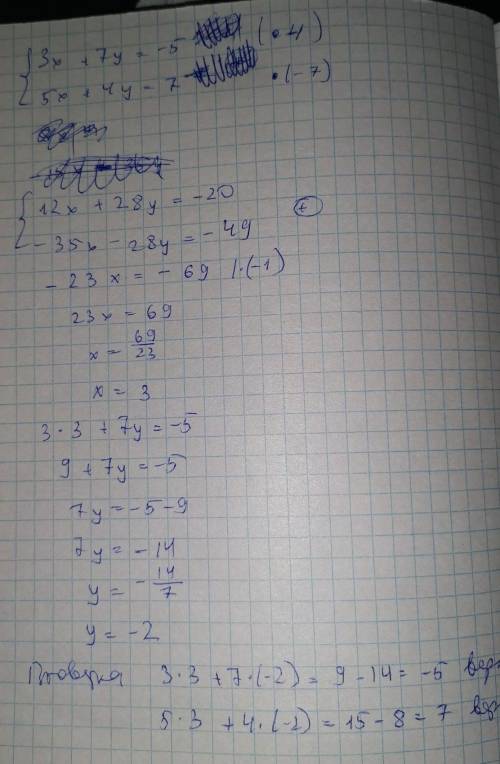 3x + 7y = -5 | (•4)
5x + 4y = 7 •(-7)
12x + 28y = -20
-35x - 28y = -49 (+)
-23x = -69 |•(-1)
23x = 69
x = 69/23
x = 3
3•3 + 7y = -5
9 + 7y = -5
7y = -5-9
7y = -14
y = -14/7
y = -2
Проверка 3•3 + 7•(-2) = 9 - 14 = -5
5•3 + 4•(-2) = 15 - 8 = 7